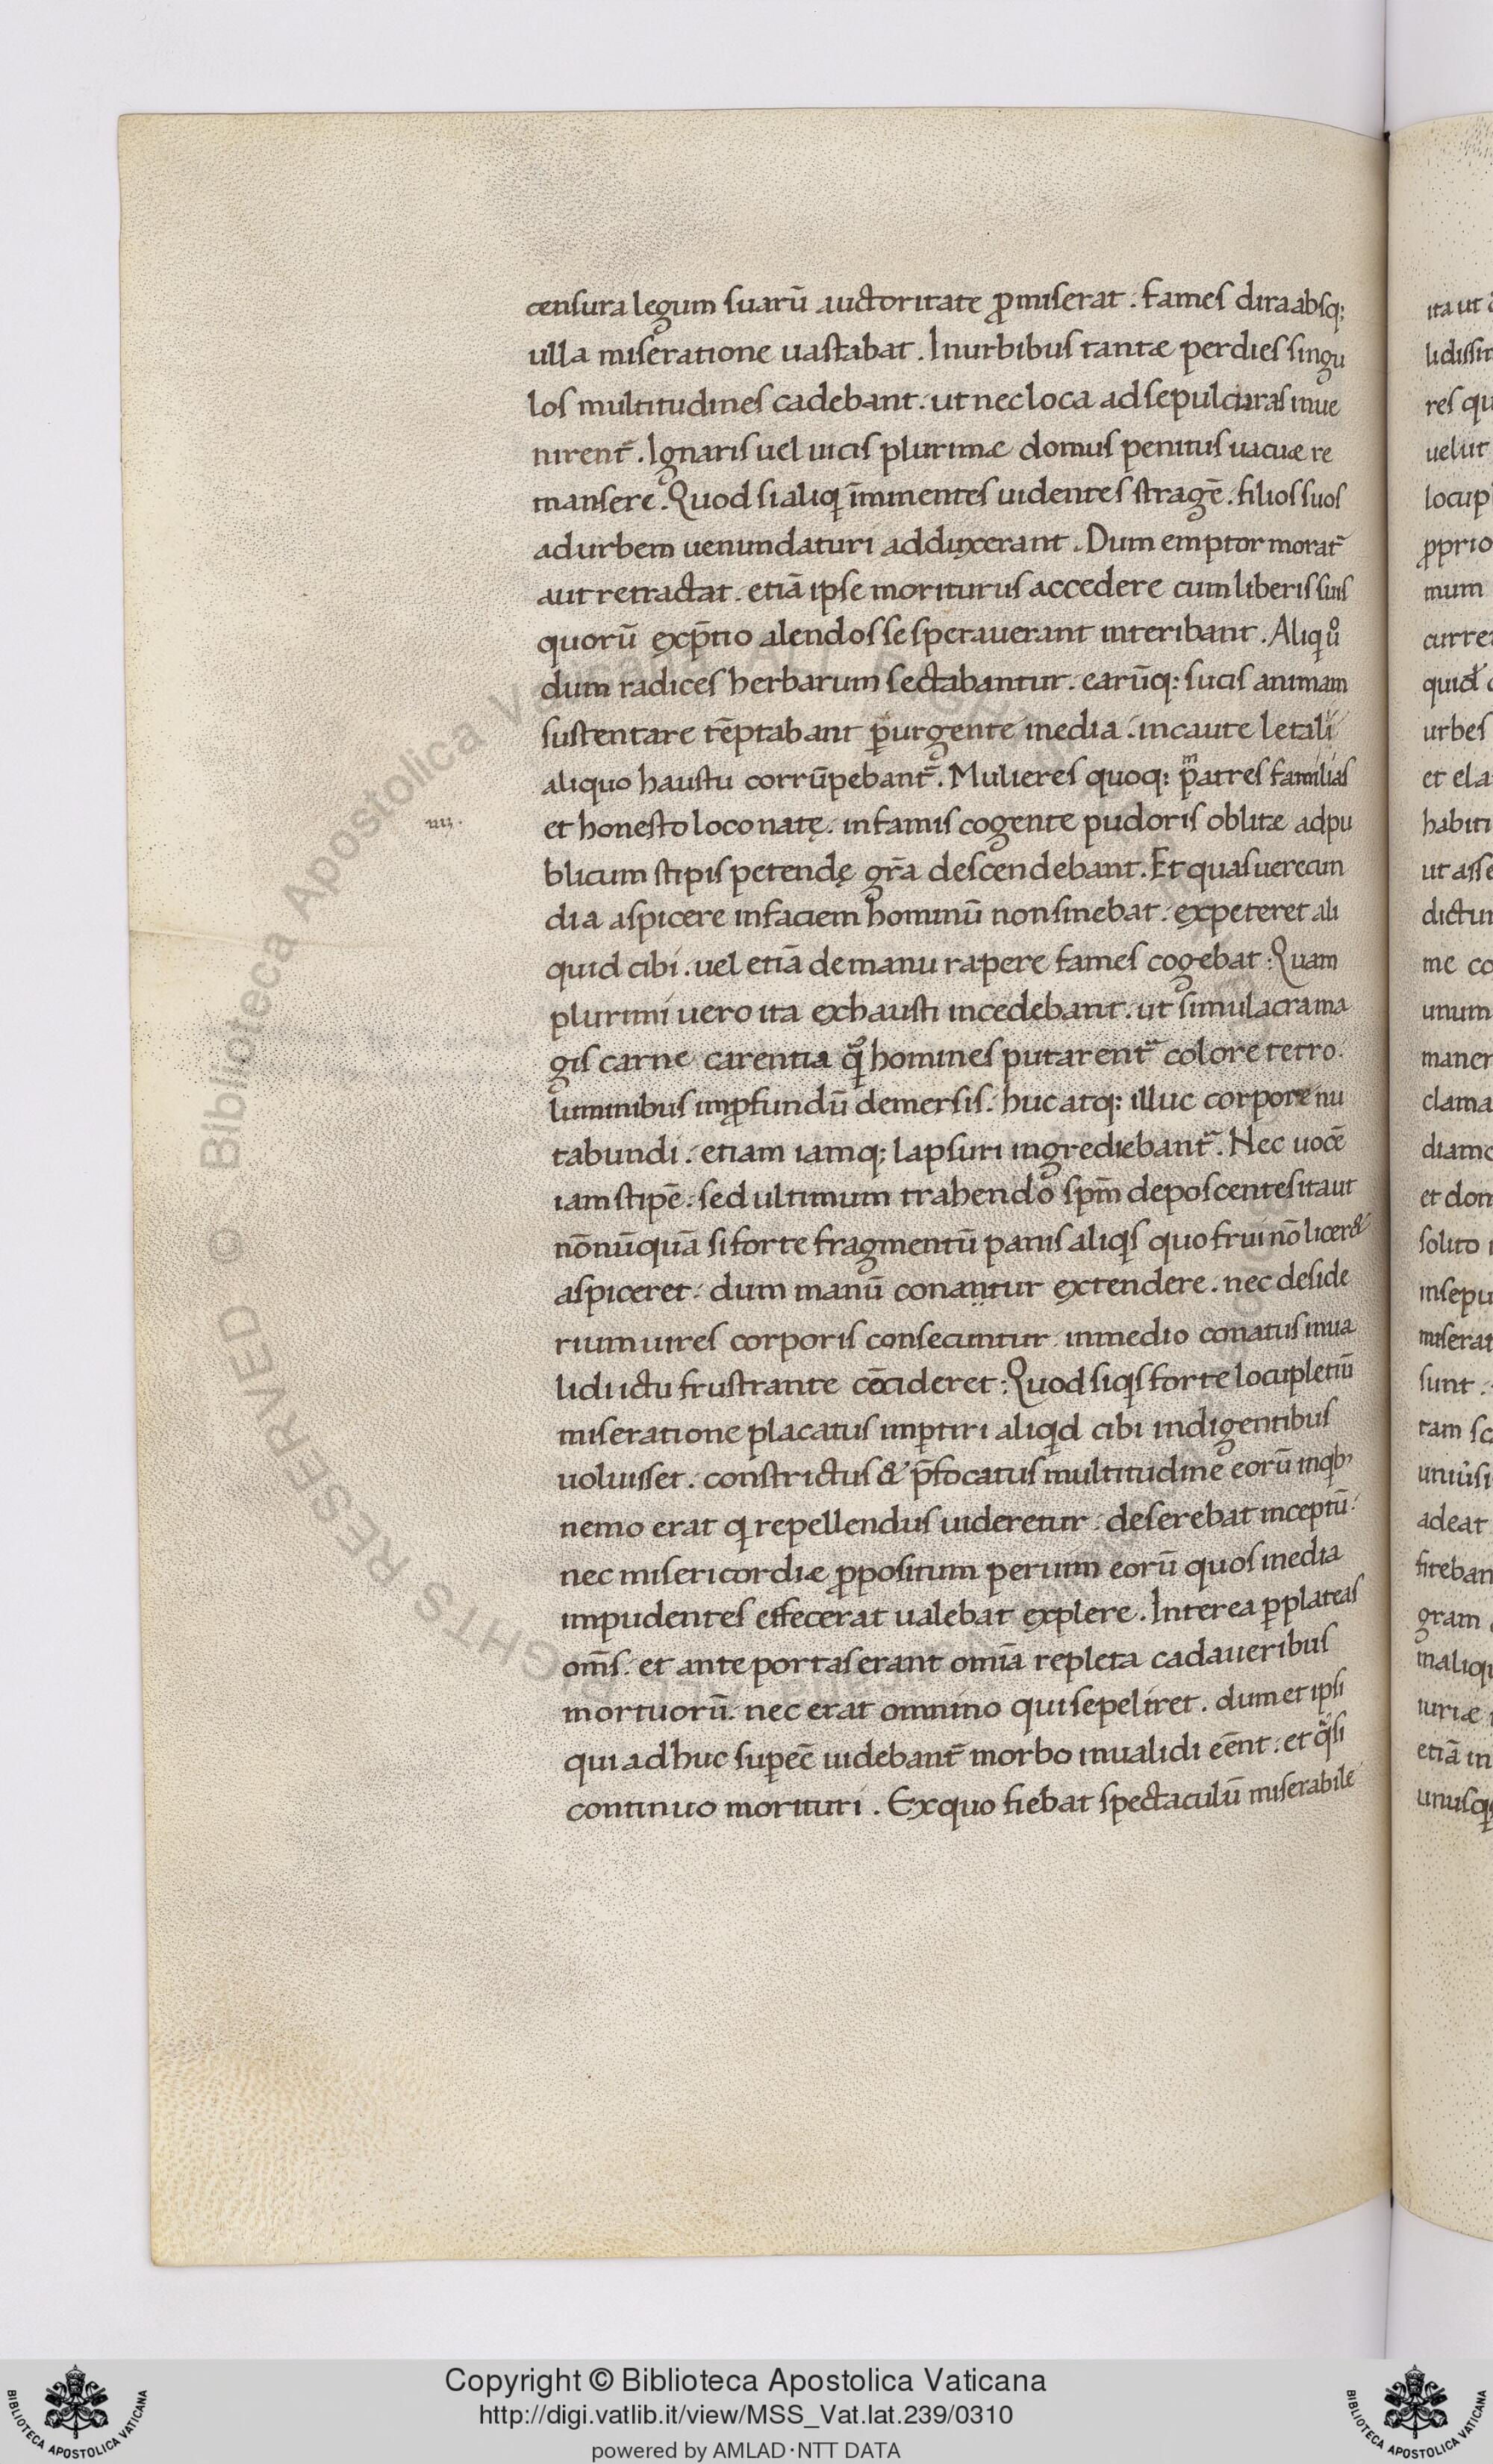 censura legum suarū auctoritate ꝓmiserat. fames dira absq;
ulla miseratione uastabat. Inurbibus tantæ perdies singu
los multitudines cadebant. ut nec loca ad sepulcturas inue
nirent̄. Ignaris uel uicis plurimæ domus penitus uacuæ re
mansere. Quod si aliqͥ īminentes uidentes stragē. filios suos
ad urbem uenundaturi adduxerant. Dum emptor morat̄
aut retractat. etiā ipse moriturus accedere cum liberis suis
quorū exp̄tio alendos se sperauerant interibant. Aliqͥ uͦ
dum radices herbarum sectabantur. earūq: sucis animam
sustentare tēptabant ꝑurgente inedia. incaute letali
aliquo haustu corrūpebant̄. Mulieres quoq: patres familias
m
et honesto loco natę. infamis cogente pudoris oblitæ ad pu
iiij.
blicum stipis petendę gr̄a descendebant. Et quas uerecun
dia aspicere infaciem hominū non sinebat. expeteret ali
quid cibi. uel etiā de manu rapere fames cogebat: Quam
plurimi uero ita exhausti incedebant. ut simulacra ma
gis carne carentia qͣ̄ homines putarent̄ colore tetro.
luminibus inꝓfundū demersis. huc atq: illuc corpore nu
tabundi. etiam iamq: lapsuri ingrediebant̄. Nec uocē
iam stipē. sed ultimum trahendo spm̄ deposcentes ita ut
nōnūquā si forte fragmentū panis aliqͥs quo frui nō licer&
aspiceret. dum manū conantur extendere. nec deside
rium uires corporis consecuntur inmedio conatus inua
lidi ictu frustrante cōcideret: Quod siqͥs forte locupletiū
miseratione placatus imꝑtiri aliqͥd cibi indigentibus
uoluisset. constrictus & p̄focatus multitudine eorū inqͥb;
nemo erat qͥ repellendus uideretur. deserebat inceptū.
nec misericordiæ ꝓpositum per uim eorū quos inedia
impudentes effecerat ualebat explere. Interea ꝑ plateas
om̄s. et ante portas erant omīa repleta cadaueribus
mortuorū. nec erat omnino qui sepeliret. dum et ipsi
qui adhuc suꝑeē uidebant̄ morbo inualidi eēnt. et qͣsi
continuo morituri. Exquo fiebat spectaculū miserabile
ita ut
lidissim
res qu
uelut
locup
ꝓprio
mum
curre
quid
urbes
et ela
habiti
ut asse
dictu
me co
unum
maner
clama
diamo
et dom
solito
insepu
miserat
sunt.
tam sc
uniusi
adeat
fiteban
gram
inaliqu
iuriæ
etiā in
unusqͥ
Biblioteca Apostolica Vaticana ALL RIGHTS RESERVED ©
Copyright © Biblioteca Apostolica Vaticana
http://digi.vatlib.it/view/MSS_Vat.lat.239/0310
powered by AMLAD·NTT DATA
BIBLIOTECA APOSTOLICA VATICANA
BIBLIOTECA APOSTOLICA VATICANA